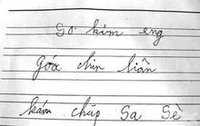 so kim eng
góa chin hiân
kám chúp sa sè